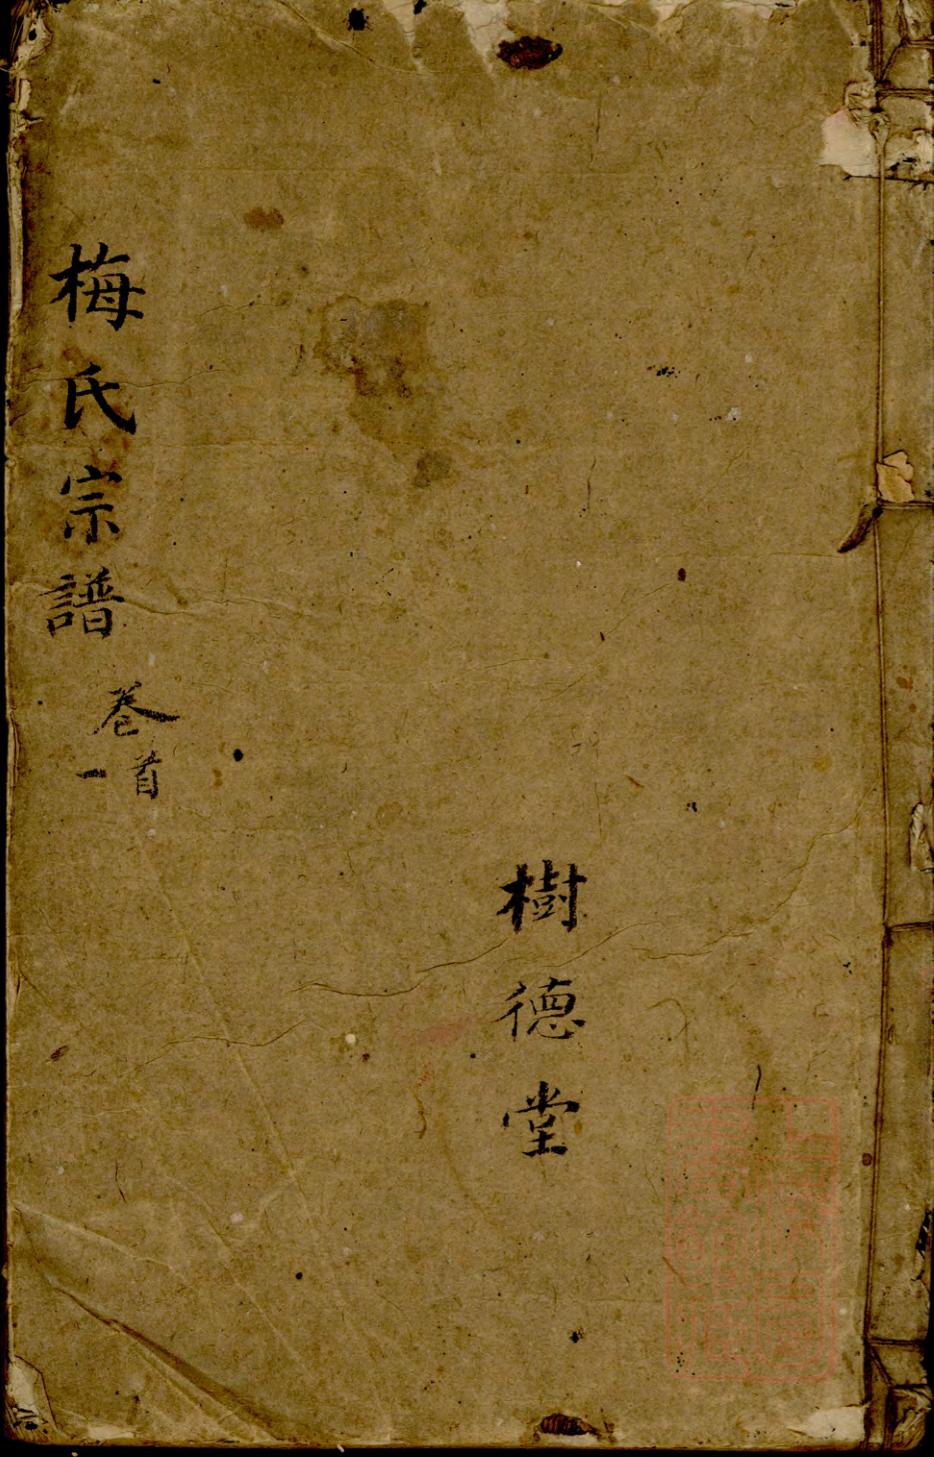 樹德堂
梅氏宗譜
卷首
一